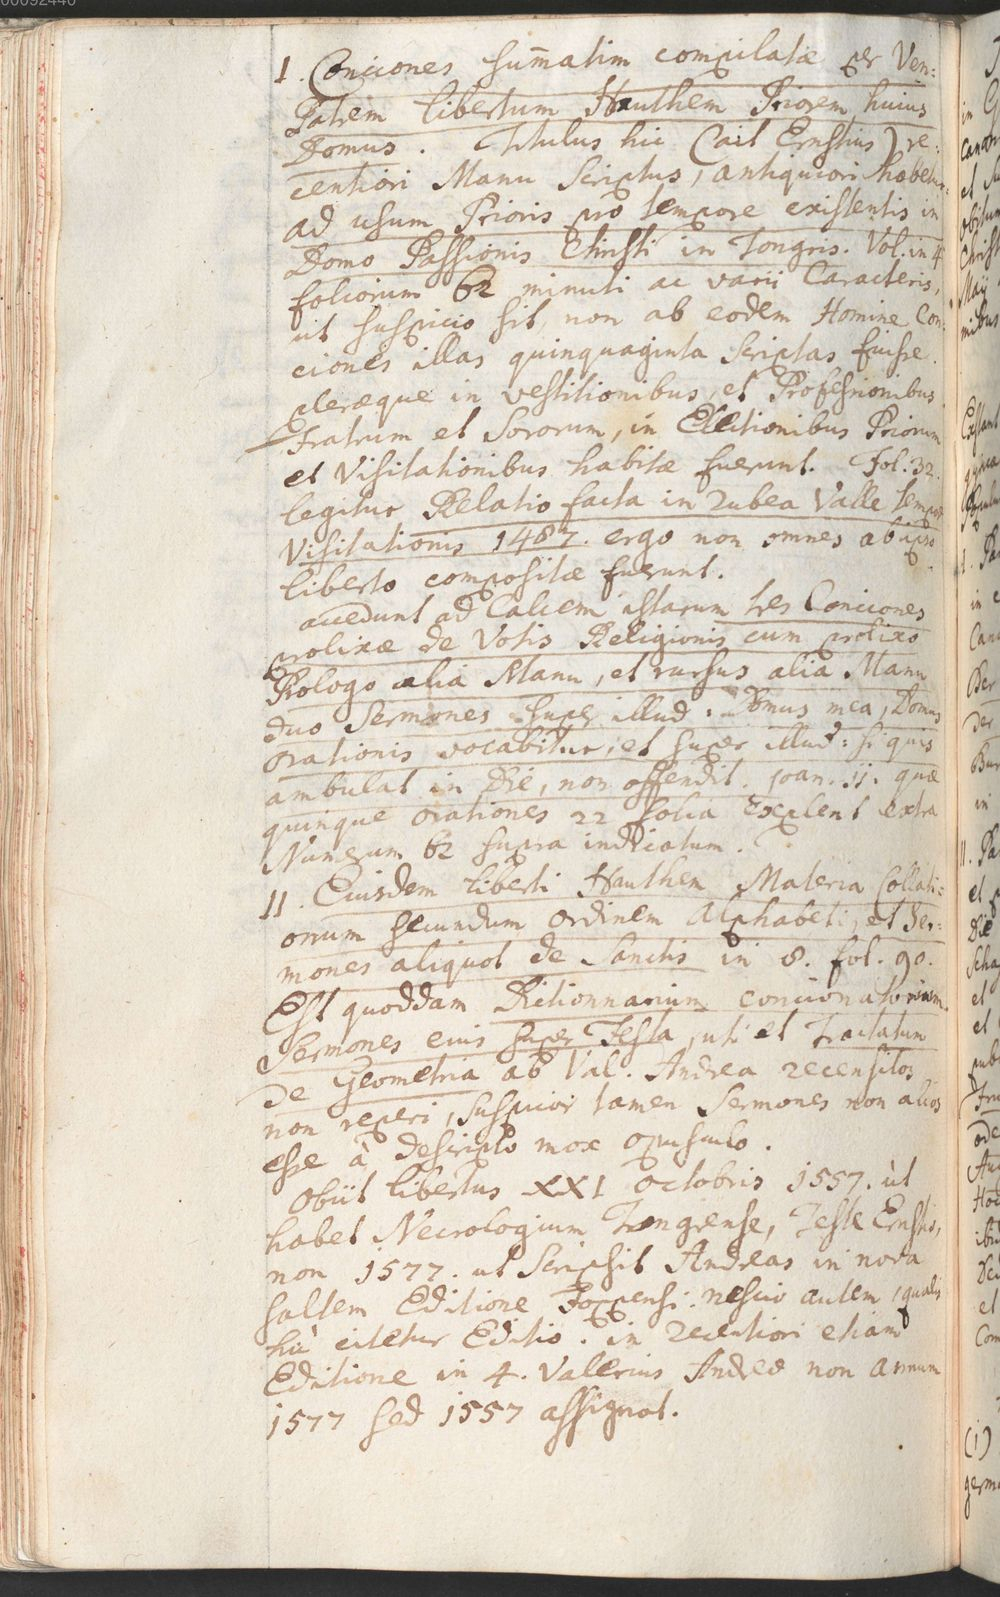 00092440
I. Conciones sum̄atim compilatæ per Ven:
Patrem libertum Hauthem Priorem huius
Domus. Titulus hic (ait Ernstius) re:
centiori Manu Scriptus, antiquiori habetur:
ad usum Prioris pro tempore existentis in
Domo Passionis Christi in Tongris. Vol. in 4
foliorum 62 minuti ac varii Caracteris,
ut suspicio sit, non ab eodem Homine Con:
ciones illas quinquaginta scriptas fuisse.
pleræque in vestitionibus, et Professionibus
Fratrum et Sororum, in Electionibus Priorum
et Visitationibus habitæ fuerunt. Fol. 32.
legitur Relatio facta in Rubea Valle tempore
Visitationis 1487. ergo non omnes ab ipso
liberto compositæ fuerunt.
accedunt ad Calcem istarum tres Conciones
prolixæ de Votis Religionis cum prolixo
Prologo alia Manu, et rursus alia Manu
duo Sermones super illud: Domus mea, Domus
orationis vocabitur, et super illud: si quis
ambulat in Die, non offendit. joan. 11. quæ
quinque orationes 22 folia explent extra
Numerum 62 supra indicatum.
II. Eiusdem liberti Hauthem Materia Collati:
onum secundum ordinem Alphabeti, et Ser:
mones aliquot de Sanctis in 8. fol. 90.
Est quoddam Dictionnarium concionatorium.
Sermones eius super Festa, uti et Tractatum
de Geometria ab Val. Andrea recensitos
non reperi, suspicor tamen Sermones non alios
esse à descripto mox opusculo.
Obiit libertus XXI Octobris 1557. ut
habet Necrologium Tongrense, Teste Ernstio,
non 1577. ut Scripsit Andreas in nova
saltem Editione Foppensi. nescio autem, qualis
hìc citetur Editio. in recentiori etiam
Editione in 4. Valerius Andreæ non annum
1577 sed 1557 assignat.